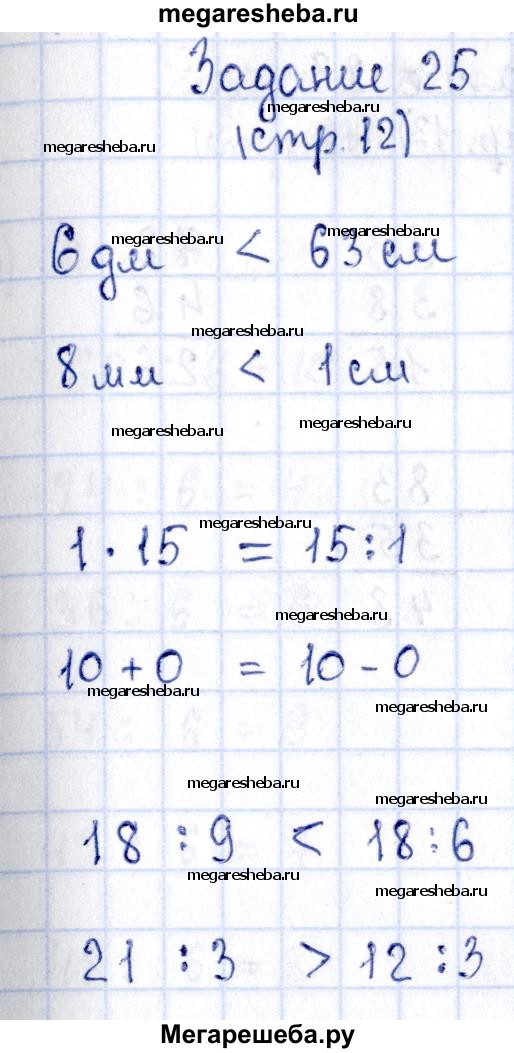 megaresheba.ru
Задание 25
megaresheba.ru
megaresheba.ru
(стр. 12)
megaresheba.ru
megaresheba.ru
6 дм < 63 см
megaresheba.ru
8 мм < 1 см
megaresheba.ru
megaresheba.ru
megaresheba.ru
1 · 15 = 15 : 1
megaresheba.ru
10 + 0 = 10 - 0
megaresheba.ru
megaresheba.ru
megaresheba.ru
megaresheba.ru
18 : 9 < 18 : 6
megaresheba.ru
megaresheba.ru
21 : 3 > 12 : 3
Мегарешеба.ру